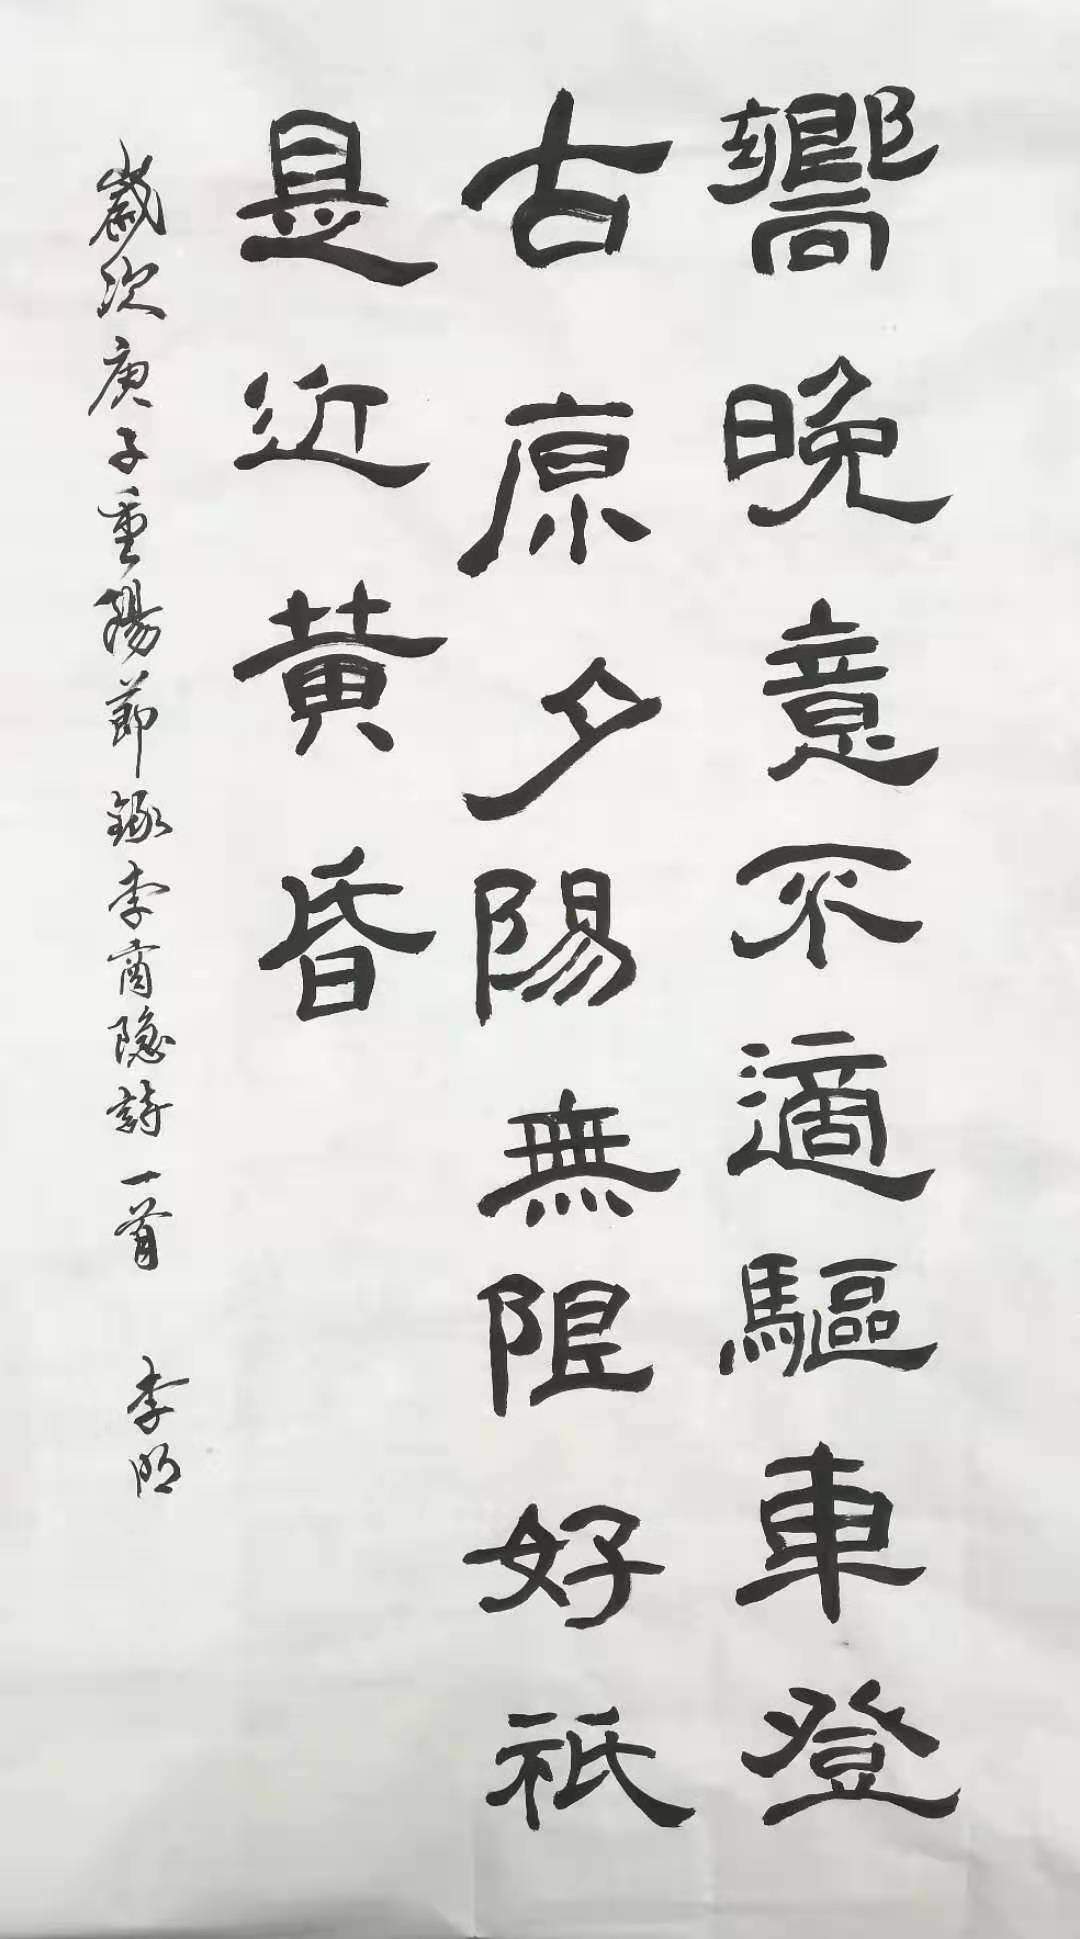 嚮晚意不適驅車登
古原夕陽無限好祇
是近黃昏
歲次庚子重陽節錄李商隱詩一首 李明